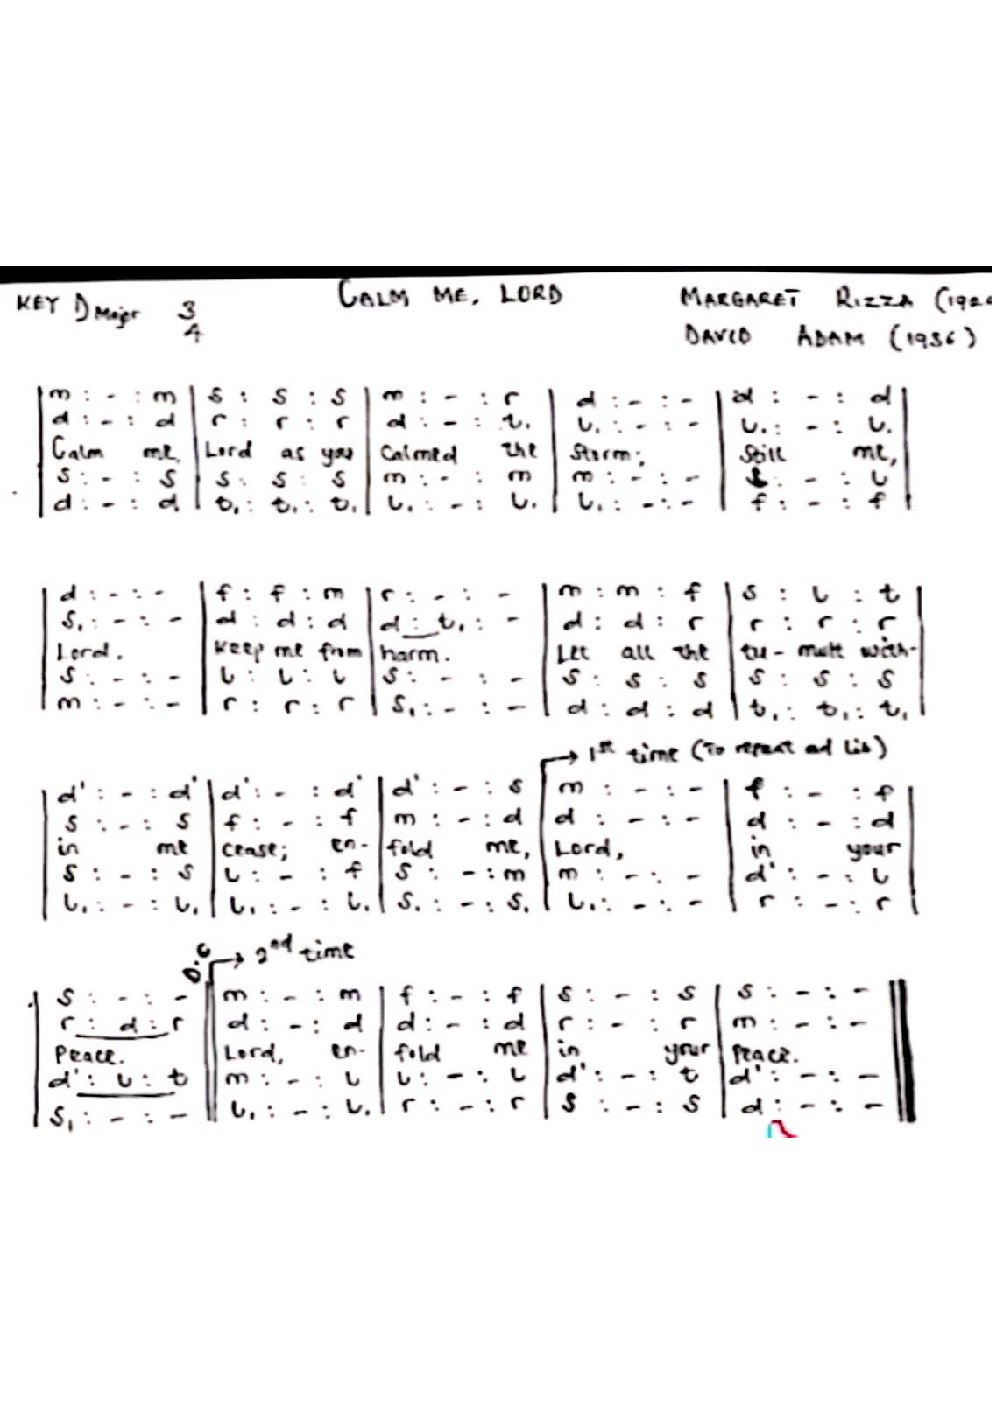 KEY D Major 3/4 CALM ME, LORD MARGARET RIZZA (192
DAVID ADAM (1936)
| m : - : m | s : s : s | m : - : r | d : - : - | d : - : d |
| d : - : d | r : r : r | d : - : t, | l, : - : - | l, : - : l, |
Calm me, Lord as you Calmed the Storm; Still me,
| s : - : s | s : s : s | m : - : m | m : - : - | : - : l |
| d : - : d | t, : t, : t, | l, : - : l, | l, : - : - | f : - : f |
| d : - : - | f : f : m | r : - : - | m : m : f | s : l : t |
| s, : - : - | d : d : d | d : t, : - | d : d : r | r : r : r |
Lord. Keep me from harm. Let all the tu - mult with-
| s : - : - | l : l : l | s : - : - | s : s : s | s : s : s |
| m : - : - | r : r : r | s, : - : - | d : d : d | t, : t, : t, |
→ 1st time (To repeat ad lib)
| d' : - : d' | d' : - : d' | d' : - : s | m : - : - | f : - : f |
| s : - : s | f : - : f | m : - : d | d : - : - | d : - : d |
in me cease; en- fold me, Lord, in your
| s : - : s | l : - : f | s : - : m | m : - : - | d' : - : l |
| l, : - : l, | l, : - : l, | s, : - : s, | l, : - : - | r : - : r |
D.C → 2nd time
| s : - : - || m : - : m | f : - : f | s : - : s | s : - : - ||
| r : d : r || d : - : d | d : - : d | r : - : r | m : - : - ||
Peace. Lord, en- fold me in your Peace.
| d' : l : t || m : - : l | l : - : l | d' : - : t | d' : - : - ||
| s, : - : - || l, : - : l, | r : - : r | s : - : s | d : - : - ||